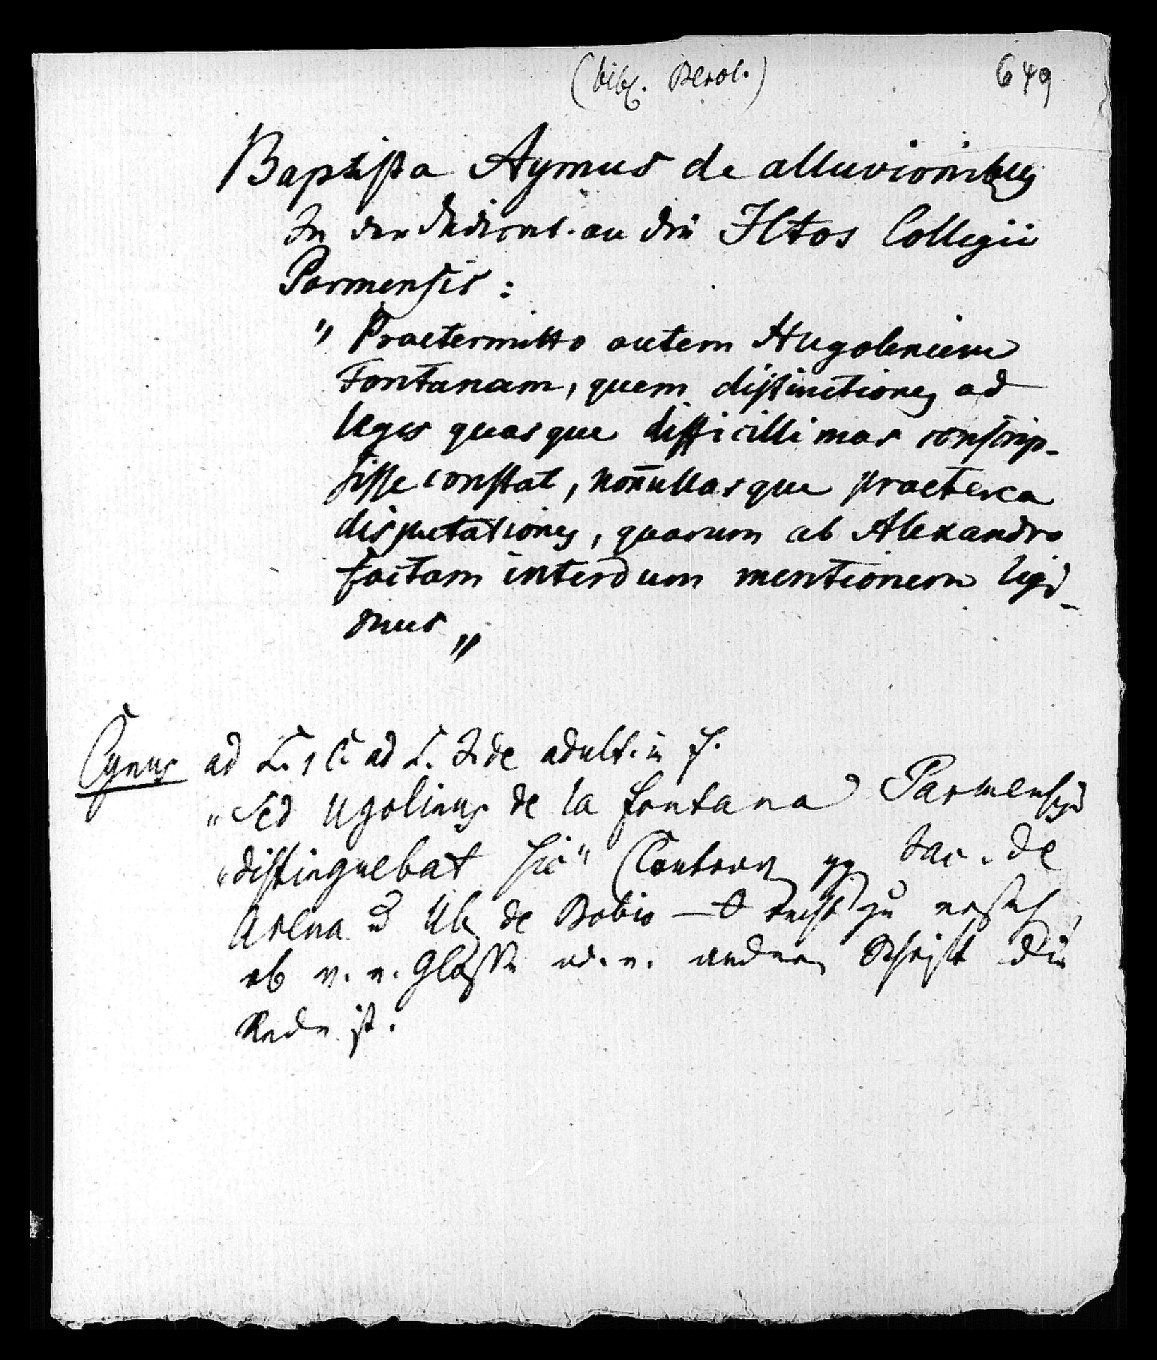 (bibl. Berol.) 649
Baptista Aymus de alluvionibus
In der Dedicat. an die ICtos Collegii
Parmensis:
" Praetermitto autem Hugolinum
Fontanam, quem distinctiones ad
leges quasque difficillimas conscrip-
sisse constat, non̄ullasque praeterea
disputationes, quarum ab Alexandro
factam interdum mentionem legi-
mus „
Cynus ad L. 1 C. ad L. J. de adult. in f.
"Sed Ugolinus de la fontana Parmensis
"distinguebat sic" Jac. de
Arena & Ub. de Bobio — nicht zu ersehen,
ob v. e. Glosse od. e. andern Schrift die
Rede ist.